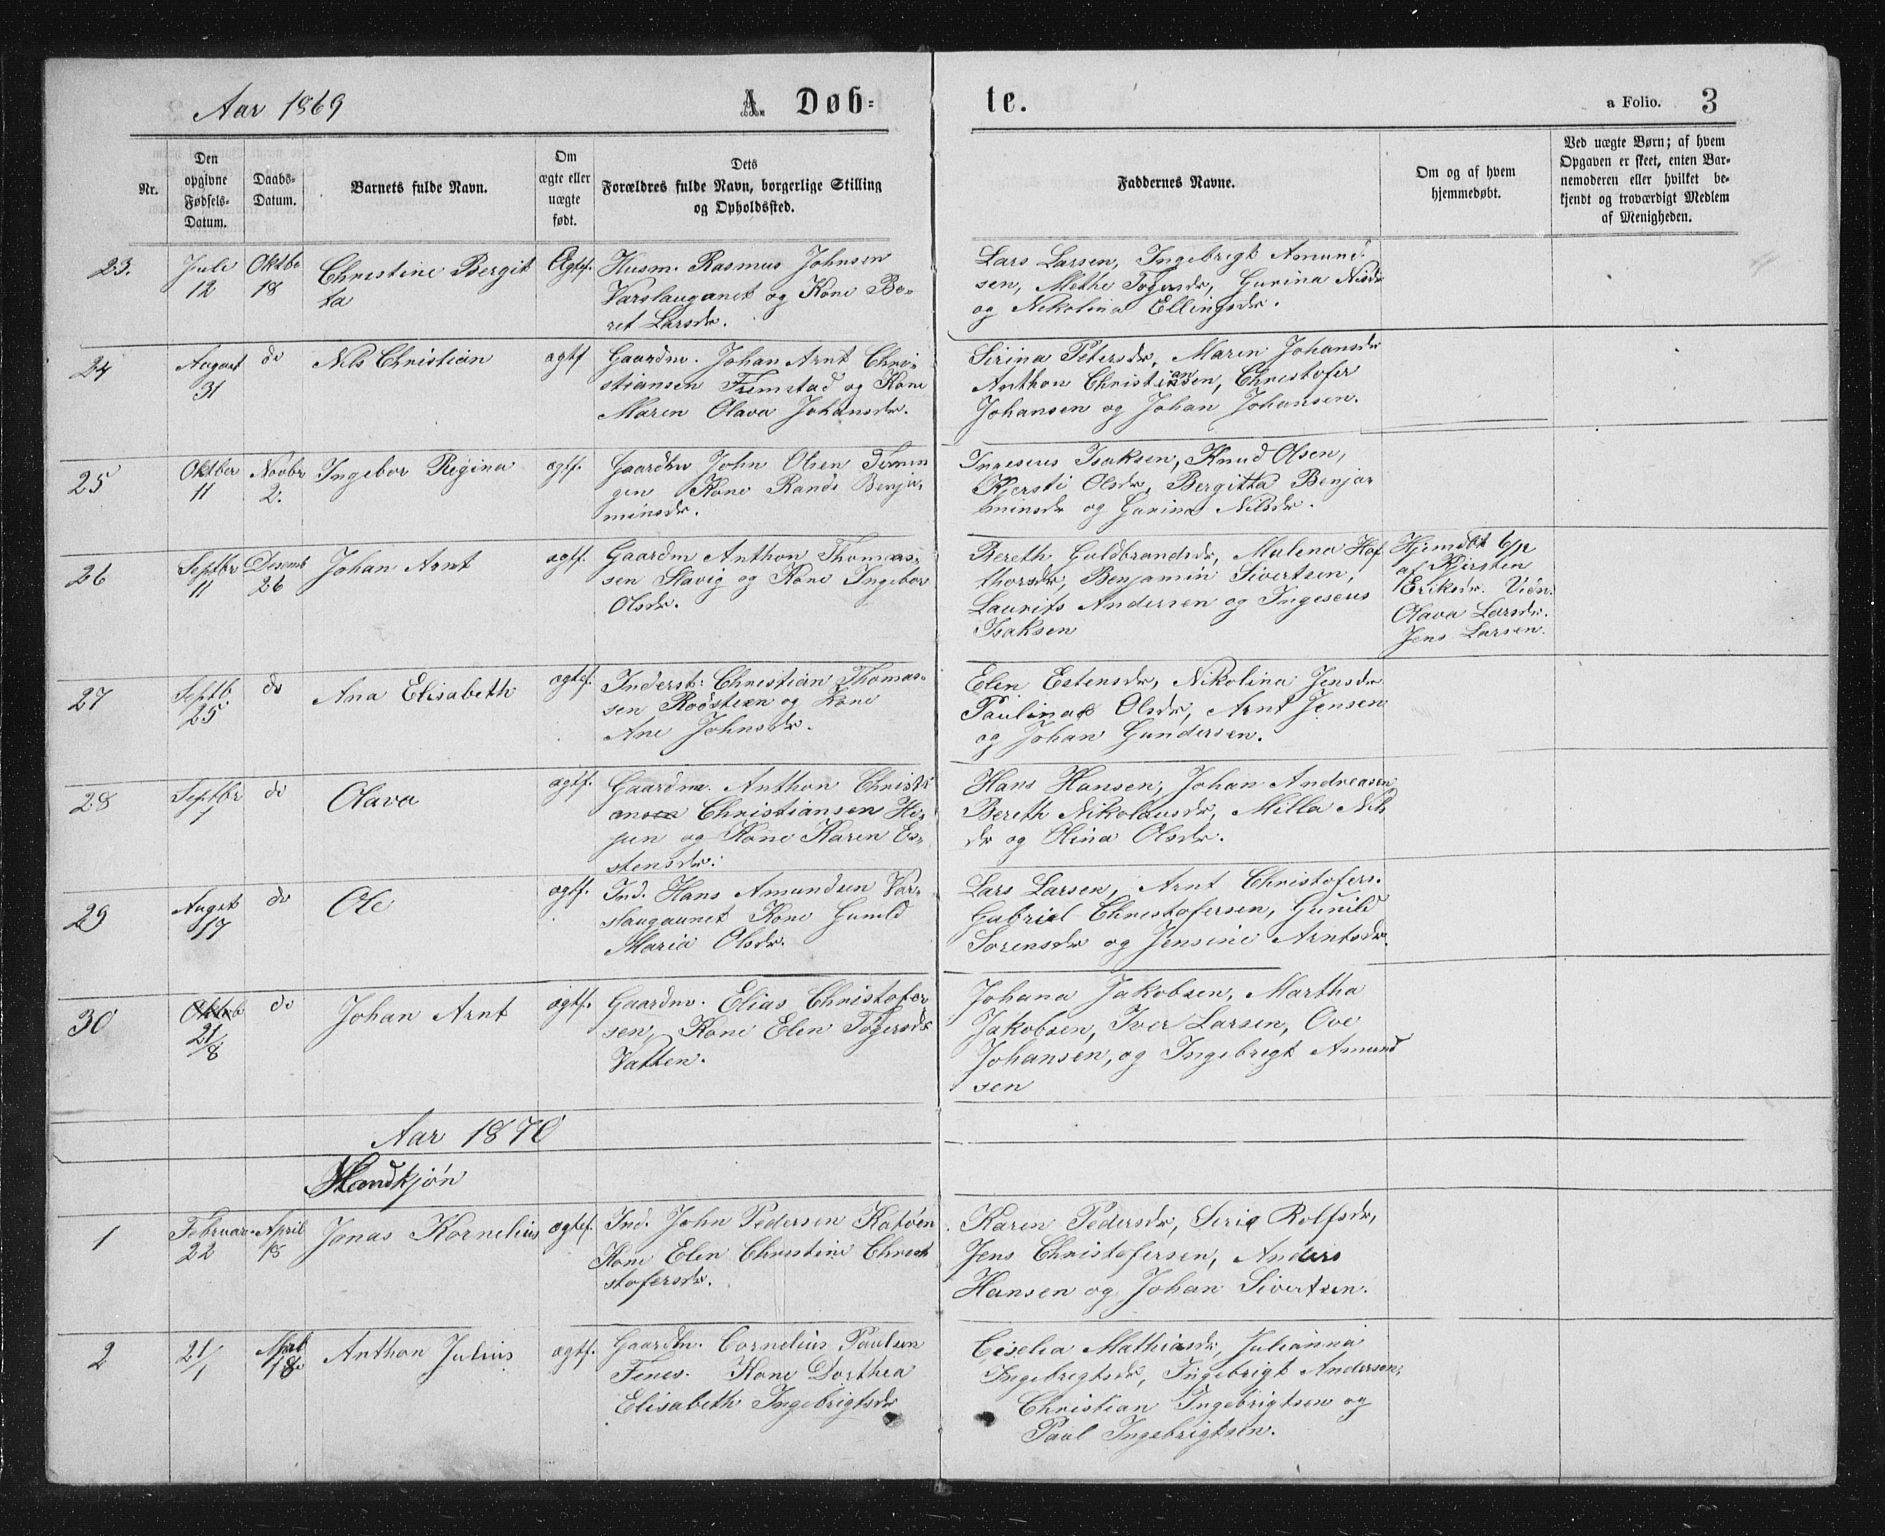 Aar 1869
A. Døb-
te.
a Folio. 3
Nr.
Den
opgivne
Fødsels-
Datum.
Daabs-
Datum.
Barnets fulde Navn.
Om
ægte eller
uægte
født.
Dets
Forældres fulde Navn, borgerlige Stilling
og Opholdssted.
Faddernes Navne.
Om og af hvem
hjemmedøbt.
Ved uægte Børn; af hvem
Opgaven er skeet, enten Bar-
nemoderen eller hvilket be-
kjendt og troværdigt Medlem
af Menigheden.
23.
Juli
12
Oktbe
18
Christine Bergit
ta
Ægtf.
Husm. Rasmus Johnsen
Varslauganet og Kone Be-
ret Larsdr.
Lars Larsen, Ingebrigt Amund-
sen, Methe Togersdr, Gurina Nisdr
og Nikolina Ellingsdr.
24
August
31
do
Nels Christian
ægtf
Gaardm. Johan Arnt Chri-
stiansen Fremstad og Kone
Maren Olava Johansdr.
Sirina Petersdr, Maren Johansdr
Anthon Christiansen, Christofer
Johansen og Johan Johansen.
25
Oktber
11
Novbr
2.
Ingebor Regina
ægtf.
Gaardm John Olsen
gen Kone Randi Benja-
minsdr.
Ingeseus Isaksen, Knud Olsen,
Kjersti Olsdr, Bergitta Benja
minsdr og Gurina Nilsdr.
26
Septbr
11
Desemb
26
Johan Arnt
ægtf.
Gaardm Anthon Thomas-
sen Slavig og Kone Ingebor
Olsdr.
Bereth Guldbrandsdr, Malena Haf
thorsdr, Benjamin Sivertsen,
Laurits Andersen og Ingeseus
Isaksen
Hjemdbt
af Kjersten
Eriksdr.
Olava Larsdr.
Jens Larsen.
27
Septb.
25
do
Ana Elisabeth
ægtef.
Inderst: Christian Thomas-
sen Roøstien og Kone
Ane Johnsdr.
Elen Estensdr, Nikolina Jensdr
Paulina Olsdr, Arnt Jensen
og Johan Gundersen.
28
Septbr
7
do
Olava
ægtf.
Gaardm. Anthon Christi
ansen Christiansen Hi-
jen og Kone Karen Es-
stensdr.
Hans Hansen, Johan Andreasen
Bereth Nikolausdr, Milla Nils
dr og Olina Olsdr.
29
Augst
17
do
Ole
ægtf.
Ind. Hans Amundsen Var-
slaugaunet Kone Gunild
Maria Olsdr.
Lars Larsen, Arnt Christofers.
Gabriel Christofersen, Gunild
Sorensdr og Jensine Arntsdr.
30
Oktob
21/8
do
Johan Arnt
ægtf.
Gaardm. Elias Christofer
sen, Kone Elen Togersdr
Vatten.
Johana Jakobsen, Martha
Jakobsen, Iver Larsen, Ove
Johansen, og Ingebrigt Amund
sen
Aar 1870
Mandkjøn
1
Februar
22
April
18
Jonas Kornelius
ægtef.
Ind. John Pedersen Katøen
Kone Elen Christine Christ
stofersdr.
Karen Pedersdr, Serie Rolfsdr,
Jens Christofersen, Anders
Hansen og Johan Sivertsen.
2
21/1
April
18
Anthon Julius
ægtf.
Gaardm. Cornelius Paulsen
Fenes. Kone Dorthea
Elisabeth Ingebrigtsdr
Ciselia Mathiasdr, Julianna
Ingebrigtsdr, Ingebrigt Andersen,
Christian Ingebrigtsen og
Paul Ingebrigtsen.